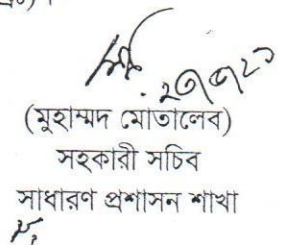 (মুহাম্মদ মোতালেব)
সহকারী সচিব
সাধারণ প্রশাসন শাখা